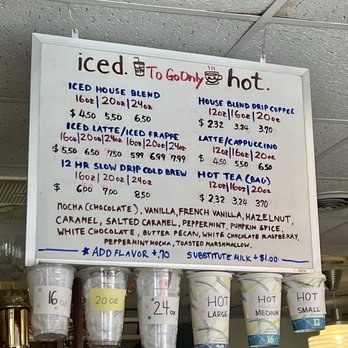 iced. To Go Only hot.
ICED HOUSE BLEND
16oz | 20oz | 24oz
$ 4.50 5.50 6.50
ICED LATTE/ICED FRAPPE
16oz | 20oz | 24oz 16oz | 20oz | 24oz
$ 5.50 6.50 7.50 5.99 6.99 7.99
12 HR SLOW DRIP COLD BREW
16oz | 20oz | 24oz
$ 6.00 7.00 8.50
HOUSE BLEND DRIP COFFEE
12oz | 16oz | 20oz
$ 2.32 3.24 3.70
LATTE/CAPPUCCINO
12oz | 16oz | 20oz
$ 4.50 5.50 6.50
HOT TEA (BAG)
12oz | 16oz | 20oz
$ 2.32 3.24 3.70
MOCHA (CHOCOLATE), VANILLA, FRENCH VANILLA, HAZELNUT,
CARAMEL, SALTED CARAMEL, PEPPERMINT, PUMPKIN SPICE,
WHITE CHOCOLATE, BUTTER PECAN, WHITE CHOCOLATE RASPBERRY,
PEPPERMINT MOCHA, TOASTED MARSHMALLOW.
ADD FLAVOR +.70 SUBSTITUTE MILK + $1.00
16 oz
20 oz
24 oz
HOT LARGE
20
HOT MEDIUM
16
HOT SMALL
12